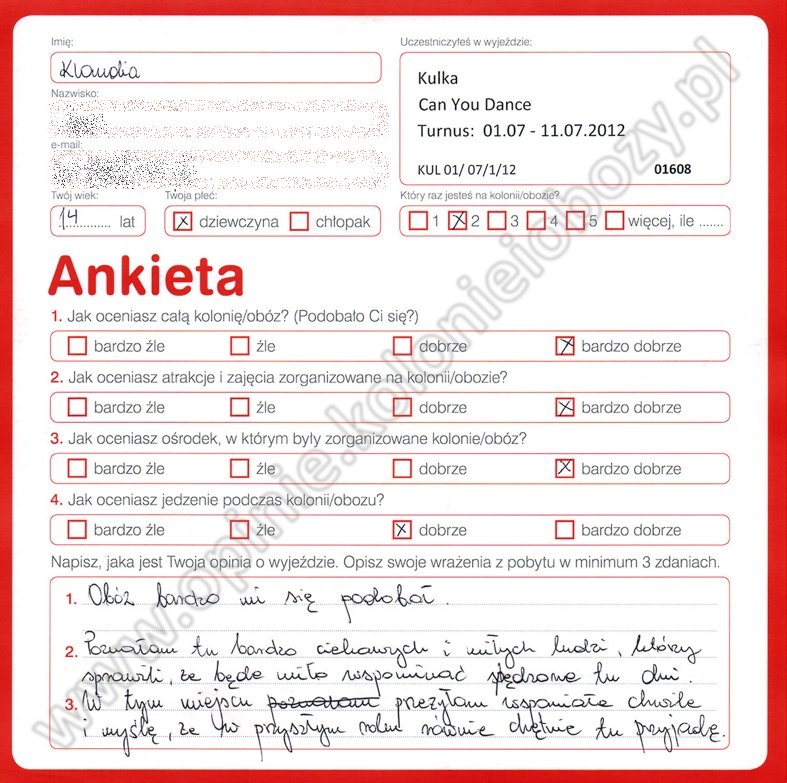 Imię:
Klaudia
Uczestniczyłeś w wyjeździe:
Kulka
Can You Dance
Turnus: 01.07 - 11.07.2012
KUL 01/ 07/1/12 01608
Nazwisko:
e-mail:
Twój wiek:
14 lat
Twoja płeć:
dziewczyna chłopak
Który raz jesteś na kolonii/obozie?
1 2 3 4 5 więcej, ile .......
Ankieta
1. Jak oceniasz całą kolonię/obóz? (Podobało Ci się?)
bardzo źle źle dobrze bardzo dobrze
2. Jak oceniasz atrakcje i zajęcia zorganizowane na kolonii/obozie?
bardzo źle źle dobrze bardzo dobrze
3. Jak oceniasz ośrodek, w którym były zorganizowane kolonie/obóz?
bardzo źle źle dobrze bardzo dobrze
4. Jak oceniasz jedzenie podczas kolonii/obozu?
bardzo źle źle dobrze bardzo dobrze
Napisz, jaka jest Twoja opinia o wyjeździe. Opisz swoje wrażenia z pobytu w minimum 3 zdaniach.
1. Obóz bardzo mi się podobał.
2. Poznałam tu bardzo ciekawych i miłych ludzi, którzy
sprawili, że będę miło wspominać spędzone tu dni.
3. W tym miejscu poznałam przeżyłam wspaniałe chwile
i myślę, że w przyszłym roku równie chętnie tu przyjadę.
www.opinie.kolonieiobozy.pl